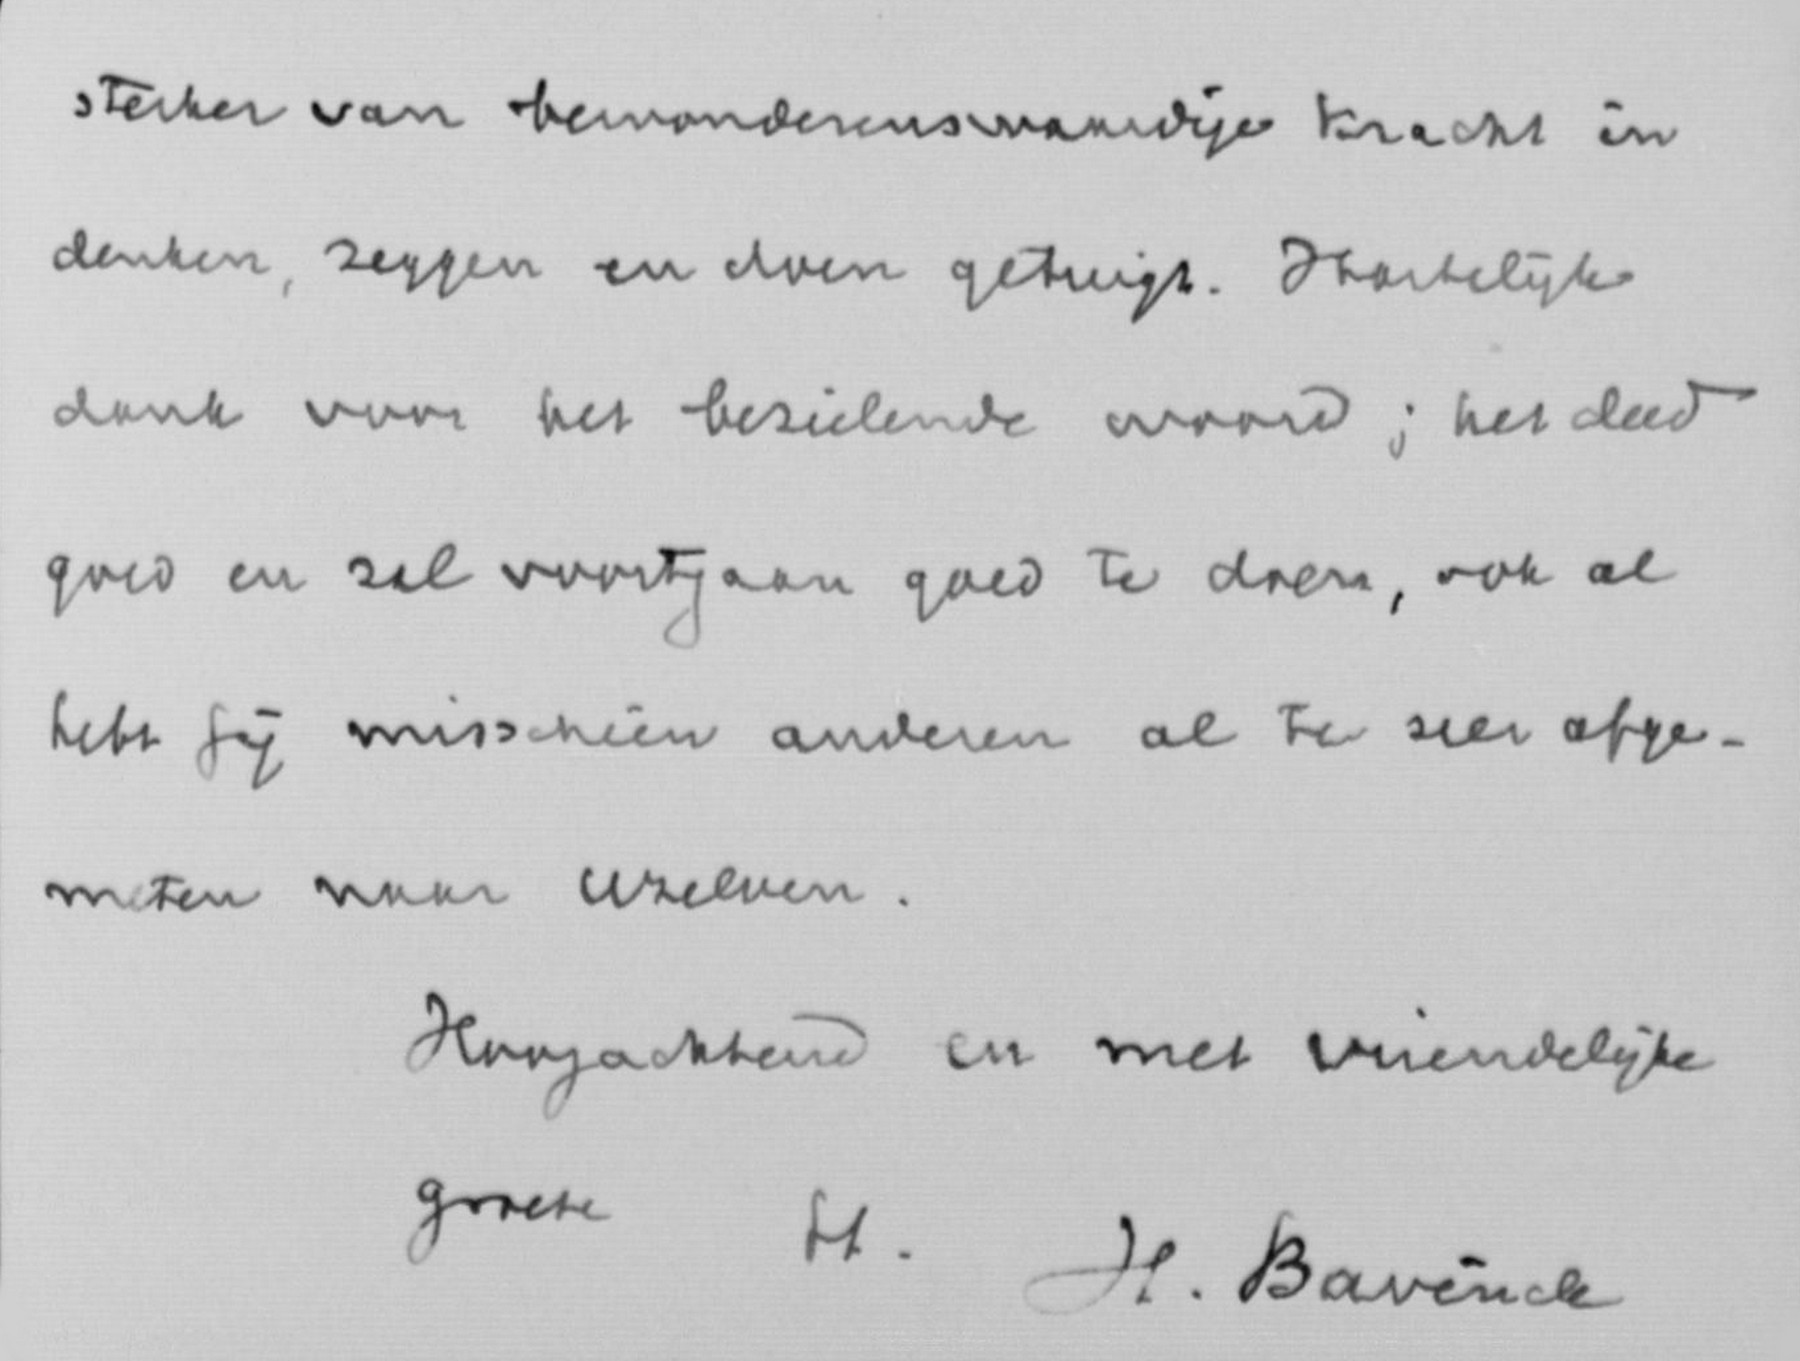 sterker van bewonderenswaardige kracht in
denken, zeggen en doen getuigt. Hartelijke
dank voor het bezielende woord; het deed
goed en zal voortgaan goed te doen, ook al
hebt gij misschien anderen al te zeer afge-
meten naar Uzelven.
Hoogachtend en met vriendelijke
groete tt. H. Bavinck